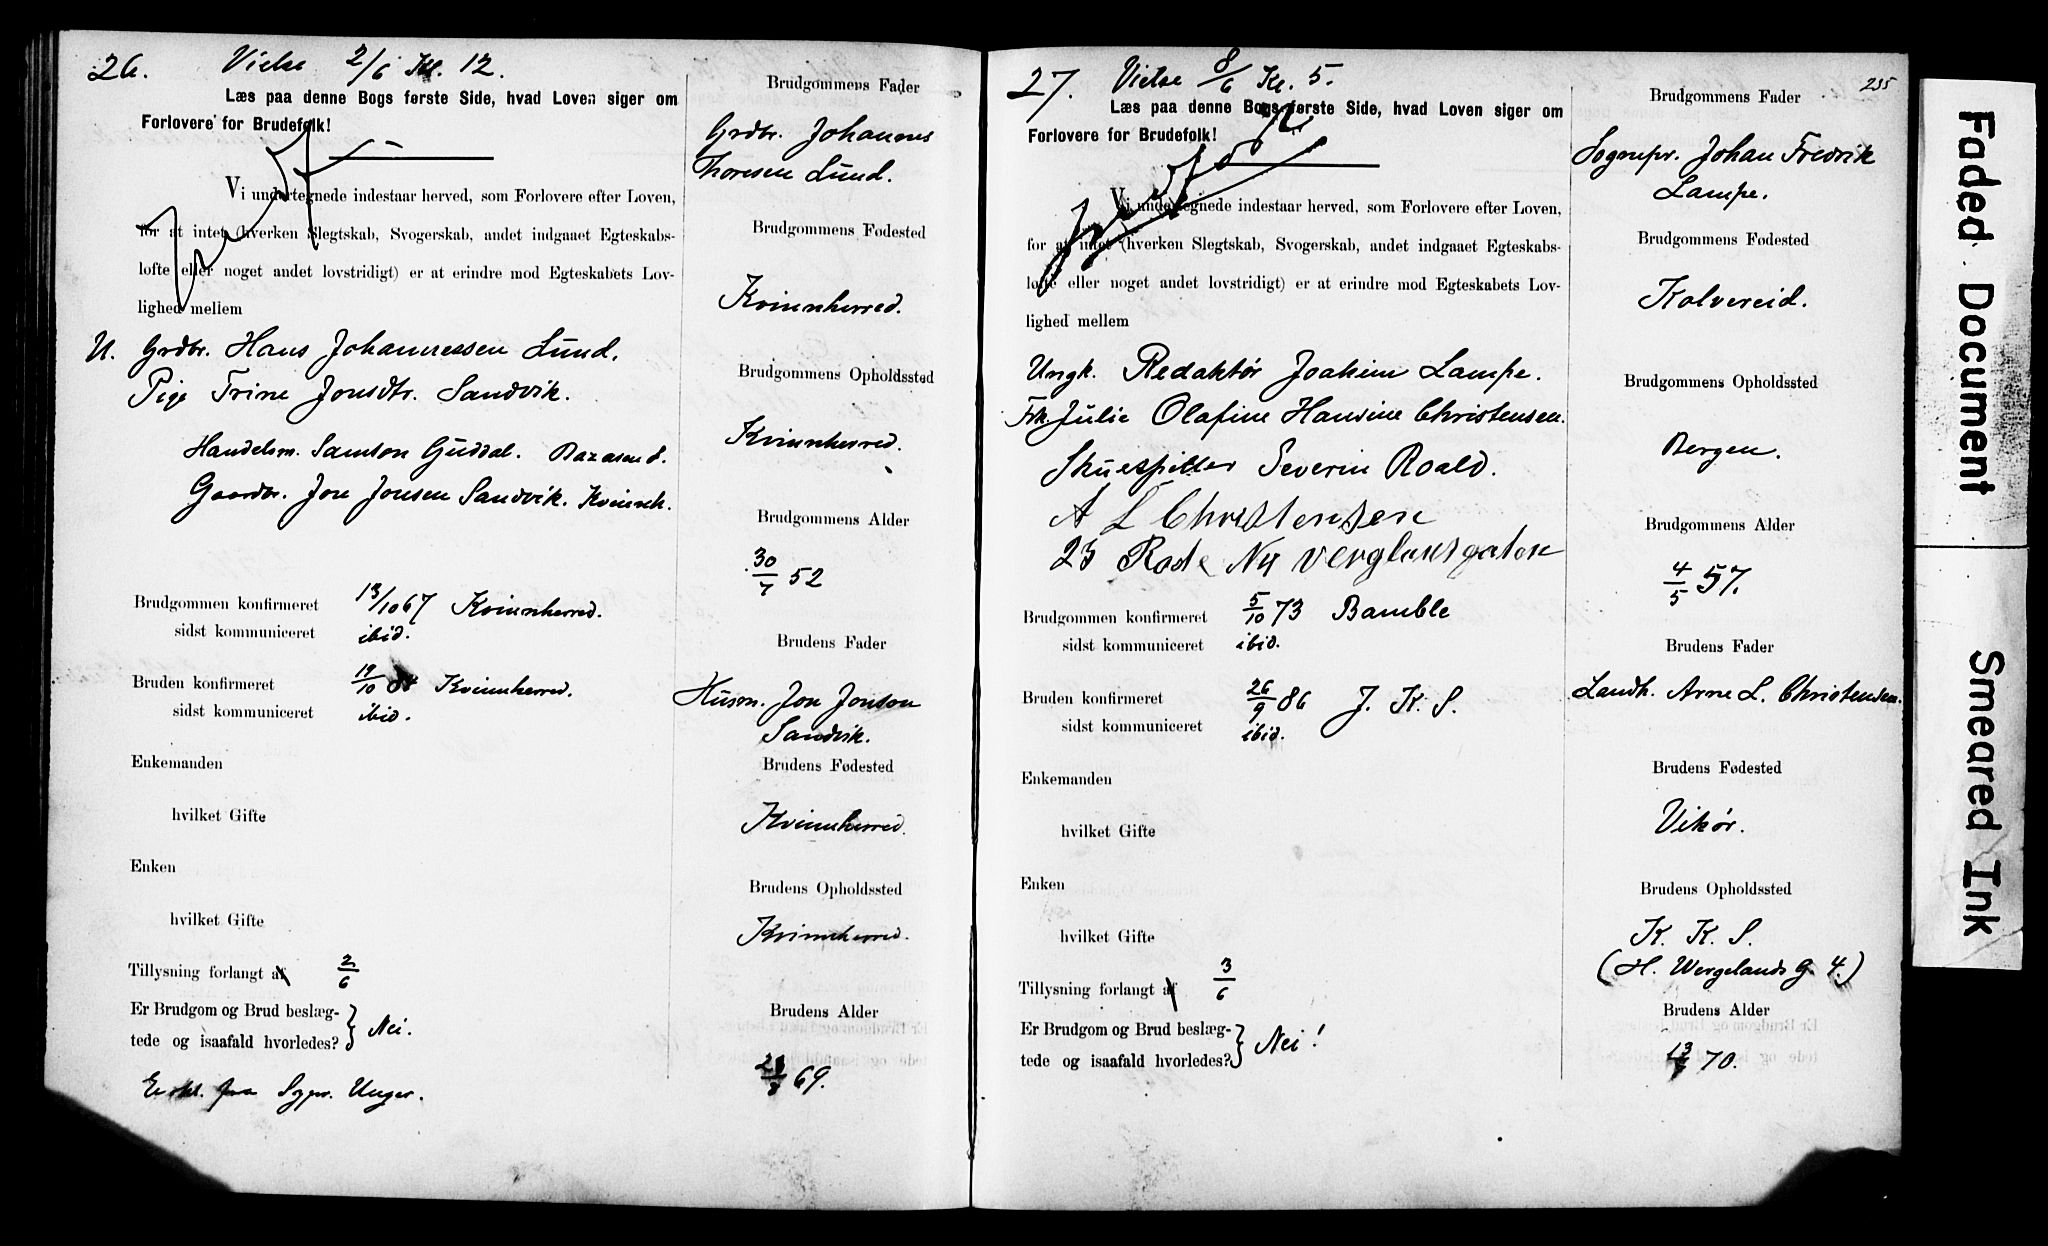 26. Vielse 2/6 Kl. 12.
Læs paa denne Bogs første Side, hvad Loven siger om
Forlovere for Brudefolk!
Vi undertegnede indestaar herved, som Forlovere efter Loven,
for at intet (hverken Slegtskab, Svogerskab, andet indgaaet Egteskabs-
løfte eller noget andet lovstridigt) er at erindre mod Egteskabets Lov-
lighed mellem
U. Grdbr. Hans Johannessen Lund.
Pige Trine Jonsdtr. Sandvik.
Handelsm. Samson Guddal.
Gaardbr. Jon Jonsen Sandvik. Kvinnh.
Brudgommen konfirmeret 13/10 67 Kvinnherred.
sidst kommuniceret ibid.
Bruden konfirmeret 19/10 84 Kvinnherred.
sidst kommuniceret ibid.
Enkemanden
hvilket Gifte
Enken
hvilket Gifte
Tillysning forlangt af 2/6
Er Brudgom og Brud beslæg-
tede og isaafald hvorledes? } Nei.
Erkl. fra Sgpr. Unger.
Brudgommens Fader
Grdbr. Johannes
Thoresen Lund.
Brudgommens Fødested
Kvinnherred.
Brudgommens Opholdssted
Kvinnherred.
Brudgommens Alder
30/7 52
Brudens Fader
Husm. Jon Jonson
Sandvik.
Brudens Fødested
Kvinnherred.
Brudens Opholdssted
Kvinnherred.
Brudens Alder
69.
27. Vielse 8/6 Kl. 5.
Læs paa denne Bogs første Side, hvad Loven siger om
Forlovere for Brudefolk!
Vi undertegnede indestaar herved, som Forlovere efter Loven,
for at intet (hverken Slegtskab, Svogerskab, andet indgaaet Egteskabs-
løfte eller noget andet lovstridigt) er at erindre mod Egteskabets Lov-
lighed mellem
Ungk. Redaktør Joakim Lampe.
Frk. Julie Olafine Hansine Christensen.
Skuespiller Severin Roald.
A L Christensen
23 Rode Ny verglansgaten
Brudgommen konfirmeret 5/10 73 Bamble
sidst kommuniceret ibid.
Bruden konfirmeret 26/9 86 J. K. S.
sidst kommuniceret ibid.
Enkemanden
hvilket Gifte
Enken
hvilket Gifte
Tillysning forlangt af 3/6
Er Brudgom og Brud beslæg-
tede og isaafald hvorledes? } Nei!
235
Brudgommens Fader
Sognepr. Johan Fredrik
Lampe.
Brudgommens Fødested
Kolvereid.
Brudgommens Opholdssted
Bergen.
Brudgommens Alder
4/5 57.
Brudens Fader
Landh. Arne L. Christensen.
Brudens Fødested
Vikør.
Brudens Opholdssted
K. K. S.
(H. Wergelands G. 4.)
Brudens Alder
70.
Faded Document
Smeared Ink